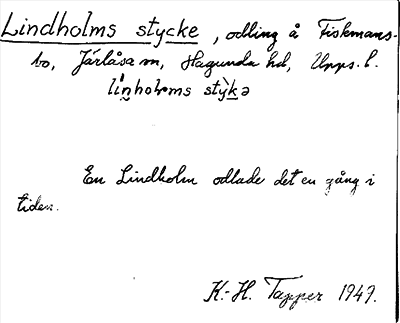 Lindholms stycke, odling å Fiskmans-
bo, Järlåsa sn, Hagunda hd, Upps. l.
li`n̥holms sty`kə
En Lindholm odlade det en gång i
tiden.
K.-H. Tapper 1947.